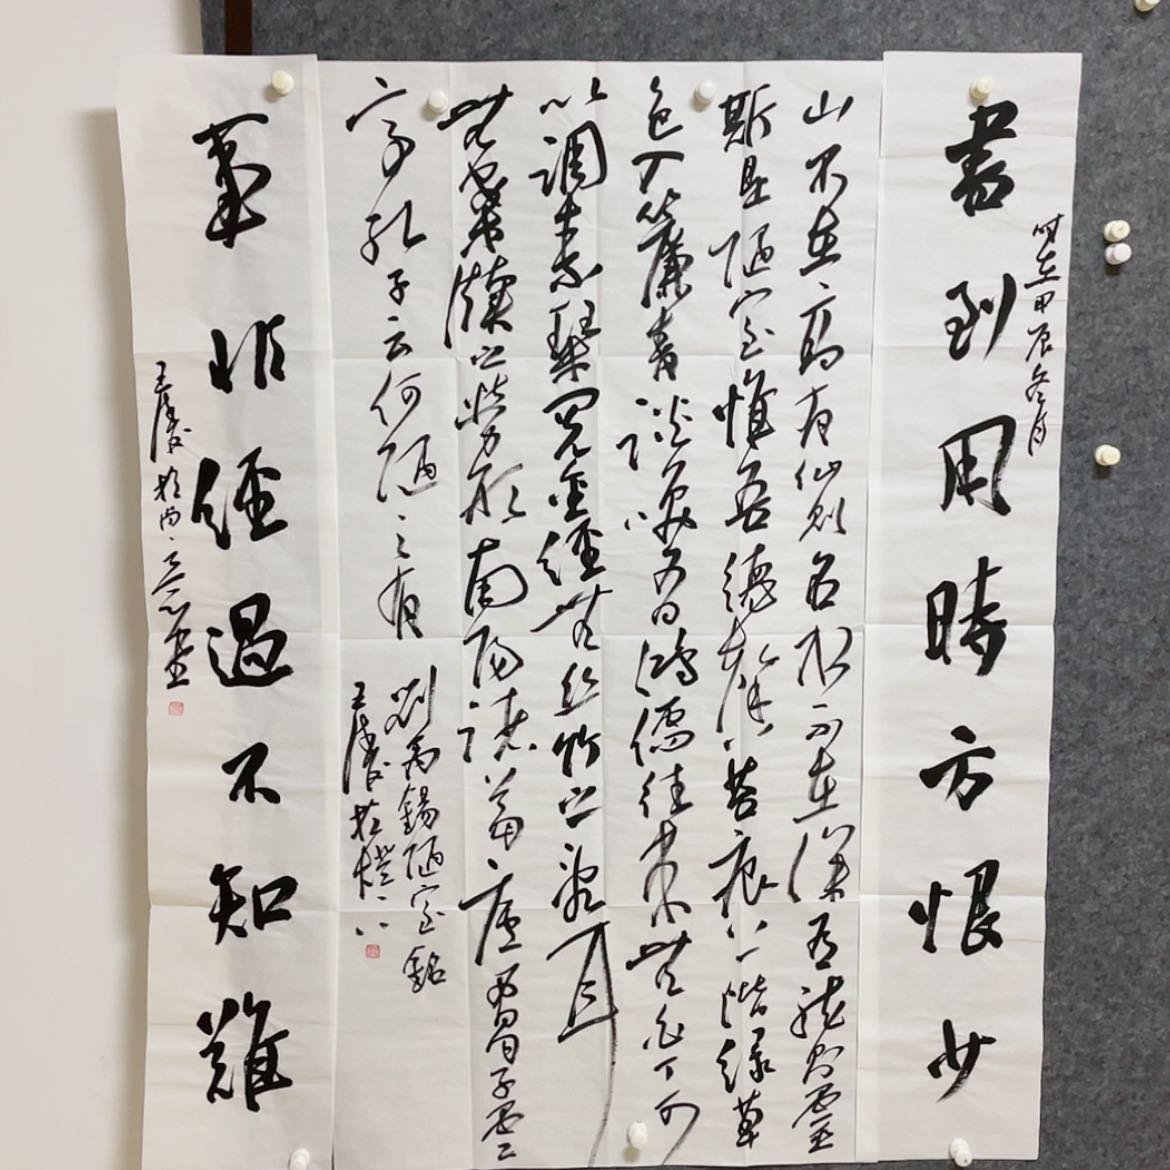 書到用時方恨少
时在甲辰冬月
山不在高有仙则名水不在深有龙则靈
斯是陋室惟吾德馨苔痕上階绿草
色入簾青談笑有鸿儒往来無白丁可
以調素琴閱金經無丝竹之乱耳
無案牘之勞形南阳诸葛庐西蜀子雲
亭孔子云何陋之有
劉禹錫陋室銘
王 於燈下
事非經過不知難
王 於